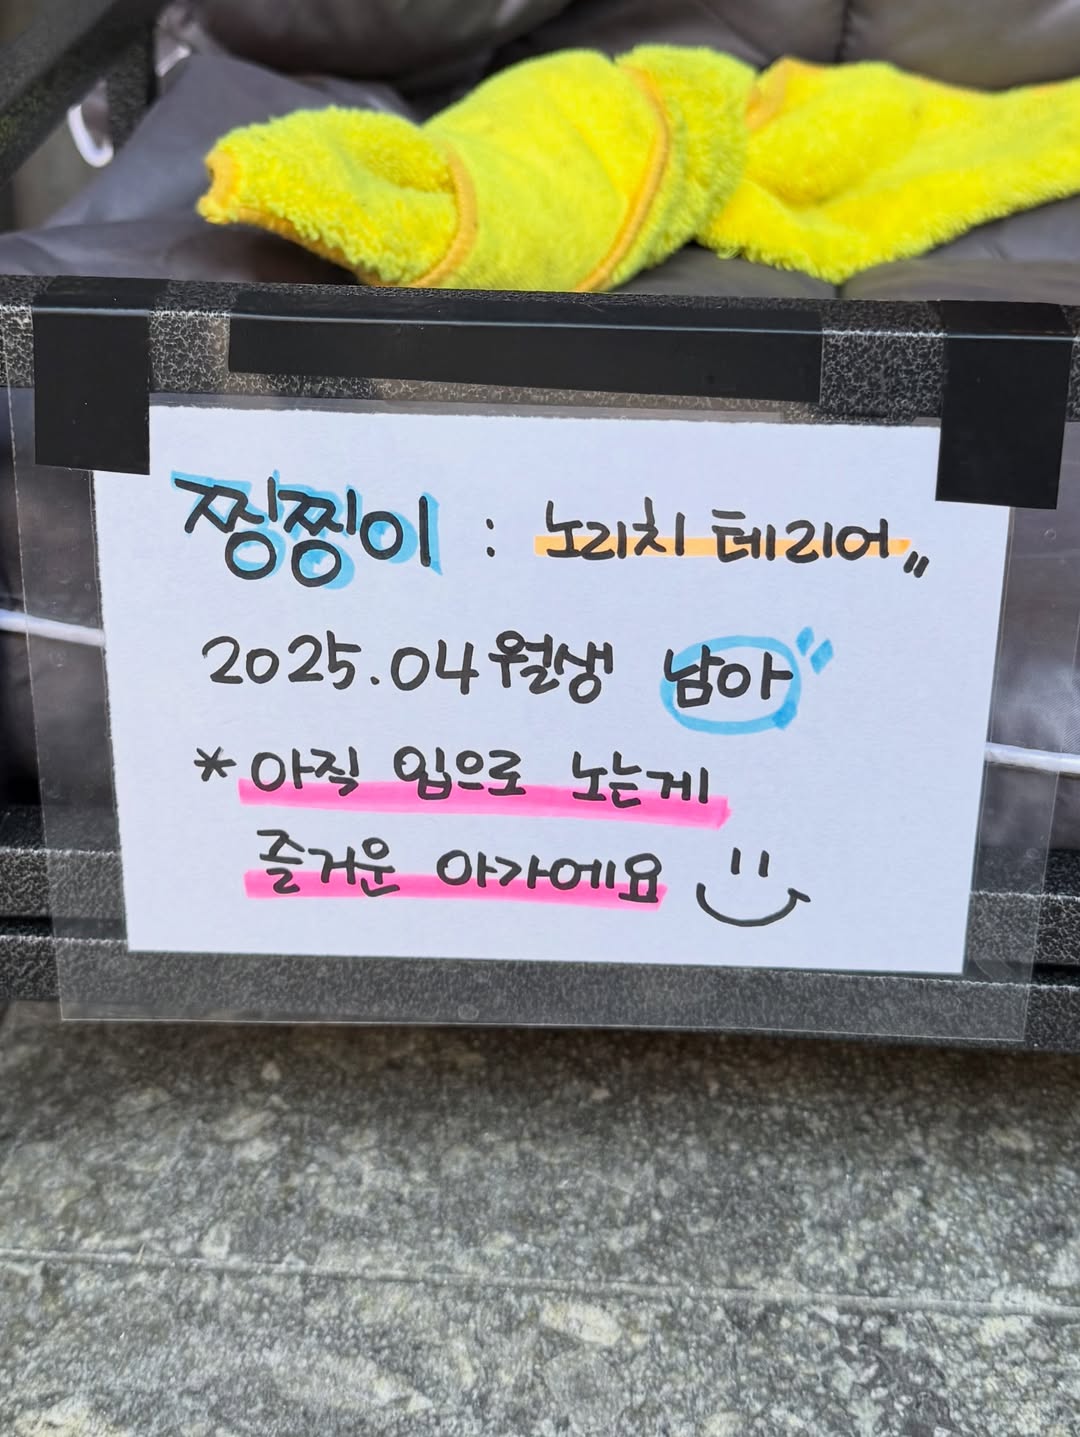 찡찡이 : 노리치 테리어〃
2025.04월생 남아
* 아직 입으로 노는게
즐거운 아가에요